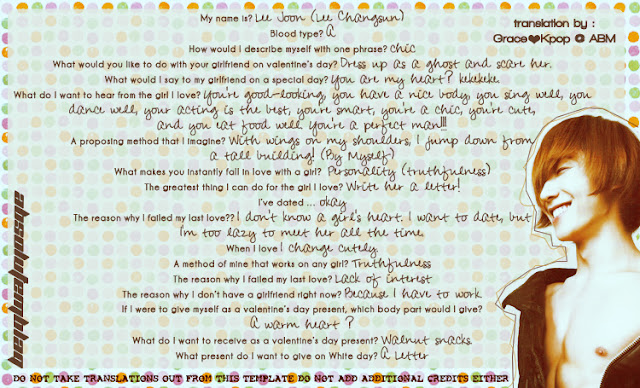 My name is? Lee Joon (Lee Changsun)
translation by :
Grace♥Kpop @ ABM
Blood type? A
How would I describe myself with one phrase? chic
What would you like to do with your girlfriend on valentine's day? Dress up as a ghost and scare her.
What would I say to my girlfriend on a special day? You are my heart? kekekeke.
What do I want to hear from the girl I love? You're good-looking, you have a nice body, you sing well, you
dance well, your acting is the best, you're smart, you're a chic, you're cute,
and you eat food well. You're a perfect man!!!
A proposing method that I imagine? With wings on my shoulders, I jump down from
a tall building! (By Myself)
What makes you instantly fall in love with a girl? Personality (truthfulness)
The greatest thing I can do for the girl I love? Write her a letter!
I've dated ... okay
The reason why I failed my last love?? I don't know a girl's heart. I want to date, but
I'm too lazy to meet her all the time.
When I love I change cutely
A method of mine that works on any girl? Truthfulness
The reason why I failed my last love? Lack of interest
The reason why I don't have a girlfriend right now? Because I have to work
If I were to give myself as a valentine's day present, which body part would I give?
A warm heart ?
What do I want to receive as a valentine's day present? Walnut snacks.
What present do I want to give on White day? A Letter
DO NOT TAKE TRANSLATIONS OUT FROM THIS TEMPLATE DO NOT ADD ADDITIONAL CREDITS EITHER